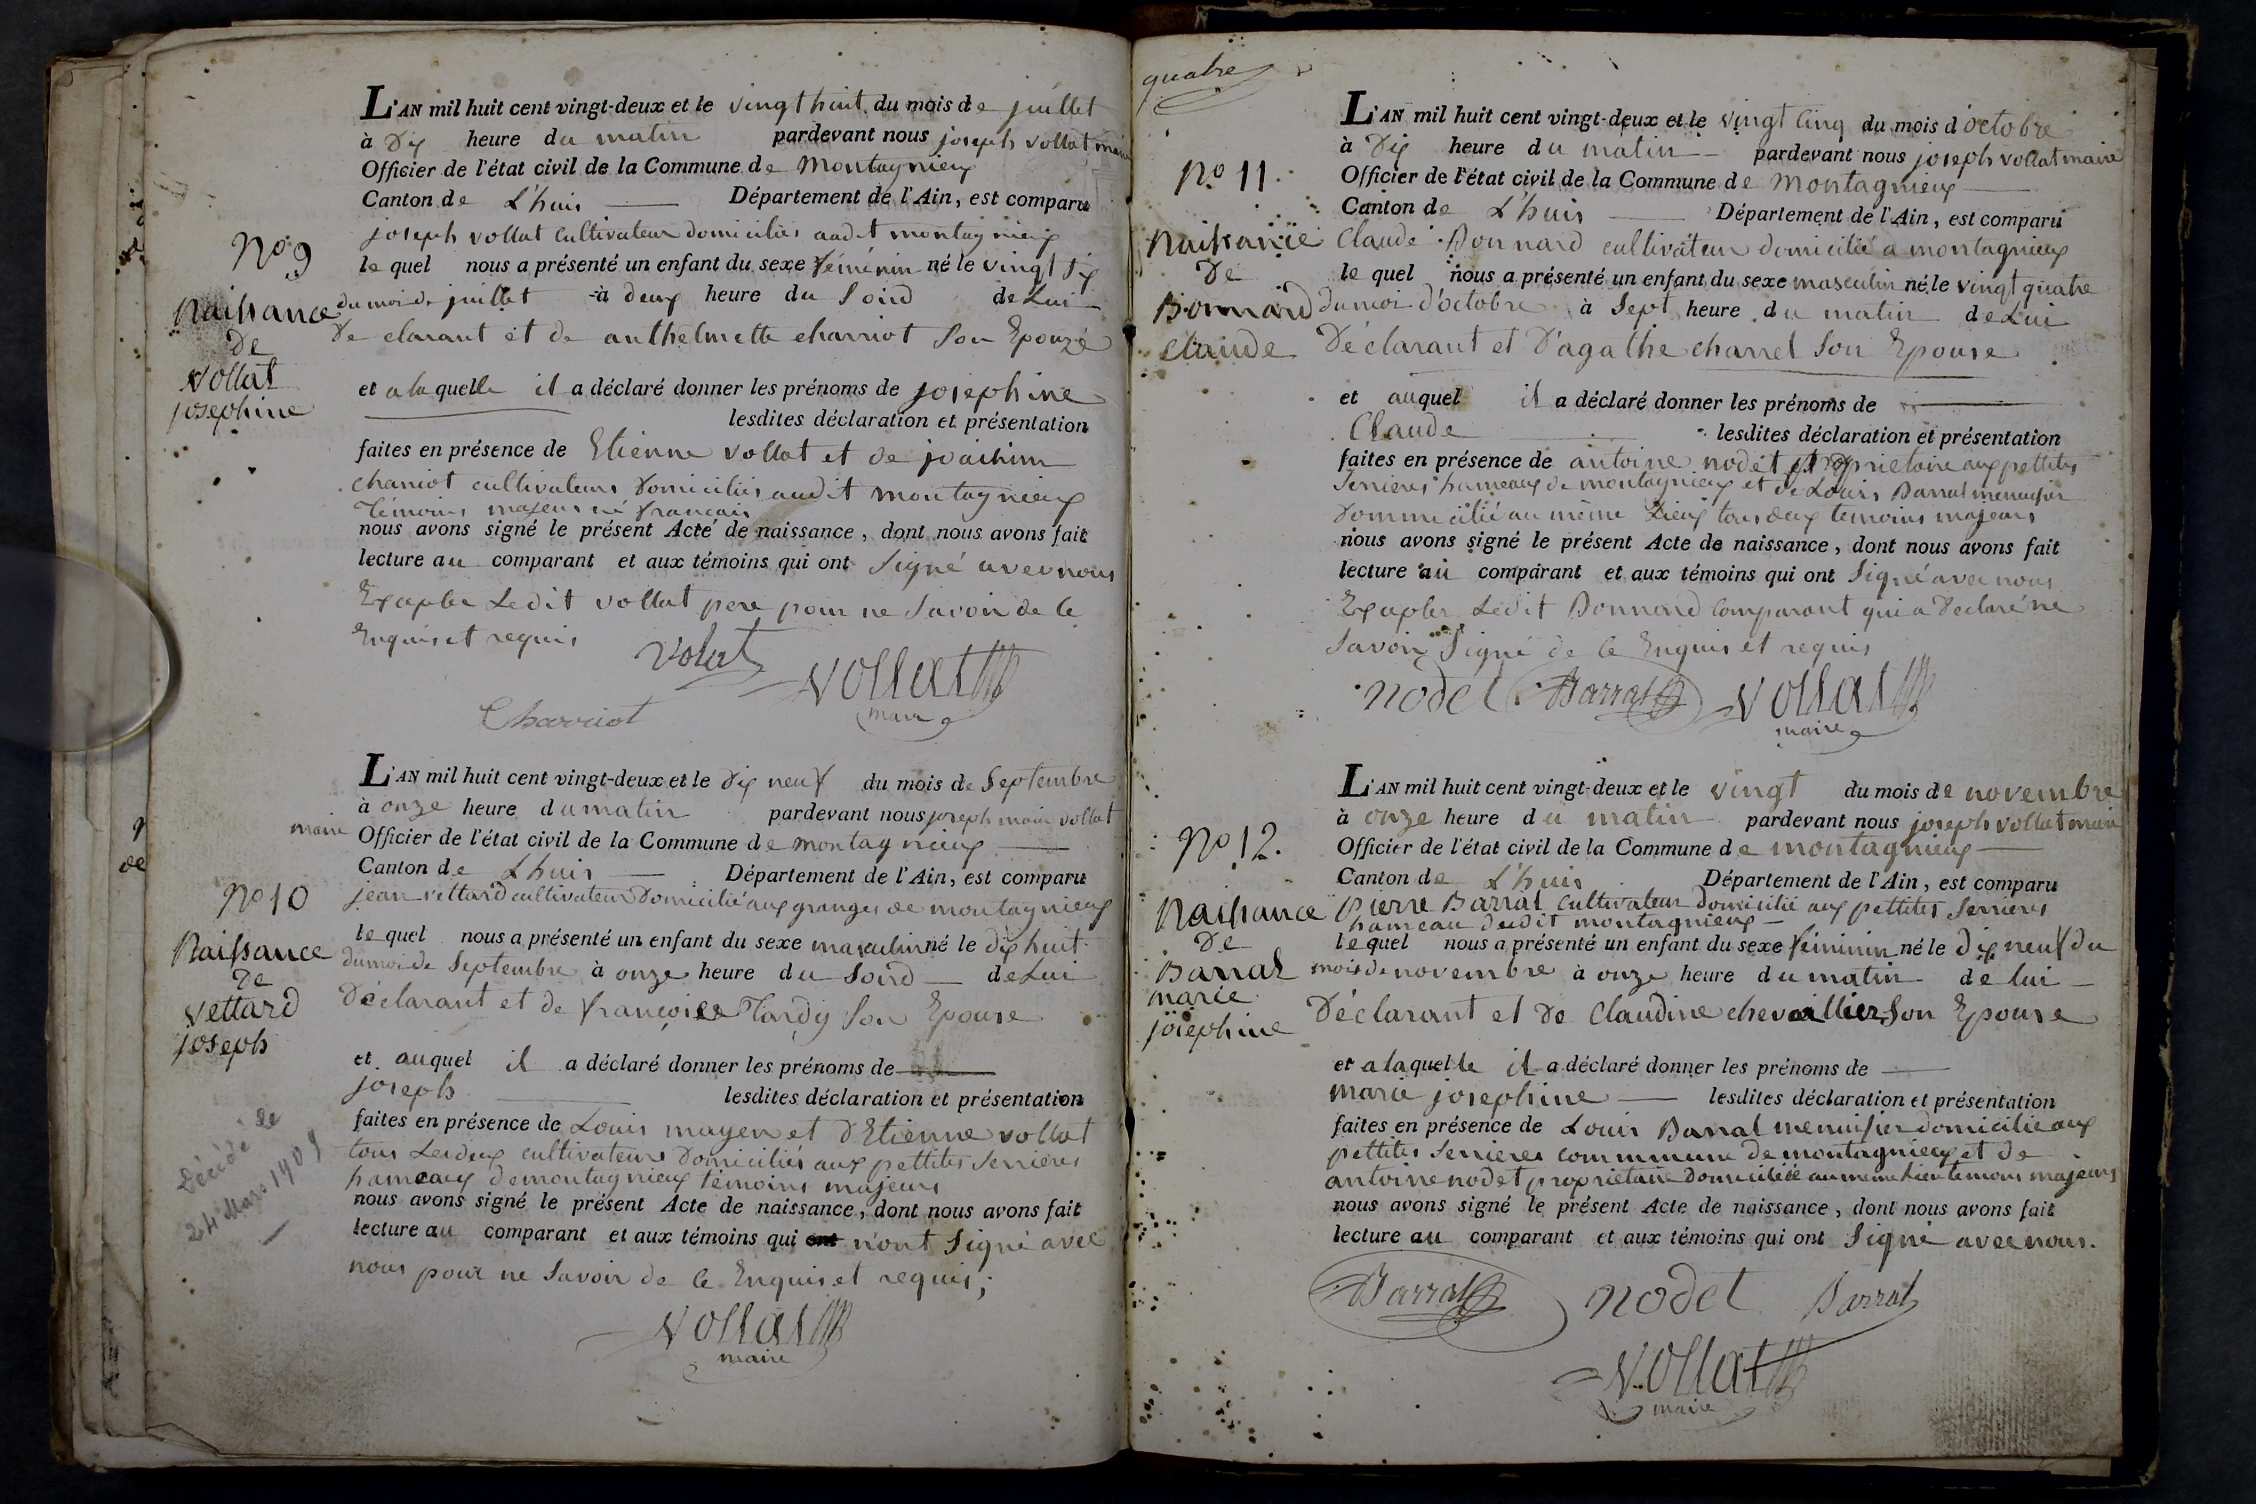 L'AN mil huit cent vingt-deux et le vingt huit du mois de juillet
à Dix heure du matin pardevant nous joseph vollat maire
Officier de l'état civil de la Commune de Montagnieux
Canton de L'huis Département de l'Ain, est comparu
joseph vollat Cultivateur domiciliés audit montagnieux
le quel nous a présenté un enfant du sexe féminin né le vingt six
du moi de juillet à deux heure du Soird de Lui
De clarant et de anthelmette charriot Son Epouze
et a la quelle il a déclaré donner les prénoms de josephine
lesdites déclaration et présentation
faites en présence de Etienne vollat et de joachim
charriot cultivateurs Domiciliés audit montagnieux
Témoins majeurs né francais
nous avons signé le présent Acte de naissance, dont nous avons fait
lecture au comparant et aux témoins qui ont Signé avec nous
Exapler Ledit vollat pere pour ne Savoir de le
Enquis et requis
volat vollat
maire
Charriot
No 9
Naissance
De
vollat
josephine
L'AN mil huit cent vingt-deux et le Dix neuf du mois de Septembre
à onze heure du matin pardevant nous joseph maire vollat
maire Officier de l'état civil de la Commune de montagnieux
Canton de L'huis Département de l'Ain, est comparu
jean vettard cultivateur Domicilié aux granges de montagnieux
le quel nous a présenté un enfant du sexe masculin né le dix huit
du moi de Septembre à onze heure du Soird de Lui
Déclarant et de françoise Tardy Son Epouse
et auquel il a déclaré donner les prénoms de
joseph lesdites déclaration et présentation
faites en présence de Louis mayen et D'Etienne vollat
tous Lesdeux cultivateurs Domiciliés aux pettites Serrieres
hameaux de montagnieux témoins majeurs
nous avons signé le présent Acte de naissance, dont nous avons fait
lecture au comparant et aux témoins qui ont n'ont Signé avec
nous pour ne Savoir de le Enquis et requis;
vollat
maire
No 10
Naissance
De
vettard
joseph
Décédé le
24 Mars 1909
quatre
L'AN mil huit cent vingt-deux et le vingt Cinq du mois d'octobre
à Dix heure du matin pardevant nous joseph vollat maire
Officier de l'état civil de la Commune de Montagnieux
Canton de L'huis Département de l'Ain, est comparu
Claude Bonnard cultivateur domicilié a montagnieux
le quel nous a présenté un enfant du sexe masculin né le vingt quatre
du moi d'octobre à Sept heure du matin de Lui
Déclarant et D'agathe charrel Son Epouse
et auquel il a déclaré donner les prénoms de
Claude lesdites déclaration et présentation
faites en présence de antoine nodet proprietaire aux pettites
Serrieres hameaux de montagnieux et de Louis Barral menuisier
Dommicilié au même Lieux tous deux temoins majeurs
nous avons signé le présent Acte de naissance, dont nous avons fait
lecture au comparant et aux témoins qui ont Signé avec nous
Exapler Ledit Bonnard Comparant qui a Declaré ne
Savoir Signé de le Enquis et requis
nodet Barral vollat
maire
No 11.
Naissance
De
Bonnard
Claude
L'AN mil huit cent vingt-deux et le vingt du mois de novembre
à onze heure du matin pardevant nous joseph vollat maire
Officier de l'état civil de la Commune de montagnieux
Canton de L'huis Département de l'Ain, est comparu
Pierre Barral Cultivateur Domicilié aux pettites Serrieres
hameau dudit montagnieux
le quel nous a présenté un enfant du sexe féminin né le dix neuf du
mois de novembre à onze heure du matin de lui
Déclarant et De Claudine chevaillier Son Epouse
et a laquelle il a déclaré donner les prénoms de
marie josephine lesdites déclaration et présentation
faites en présence de Louis Barral menuisier domicilié aux
pettites Serrieres commmune de montagnieux et de
antoine nodet proprietaire Domicilié au meme Lieu temoins majeurs
nous avons signé le présent Acte de naissance, dont nous avons fait
lecture au comparant et aux témoins qui ont Signé avec nous.
Barral nodet Barral
vollat
maire
No 12.
Naissance
De
Barral
marie
josephine